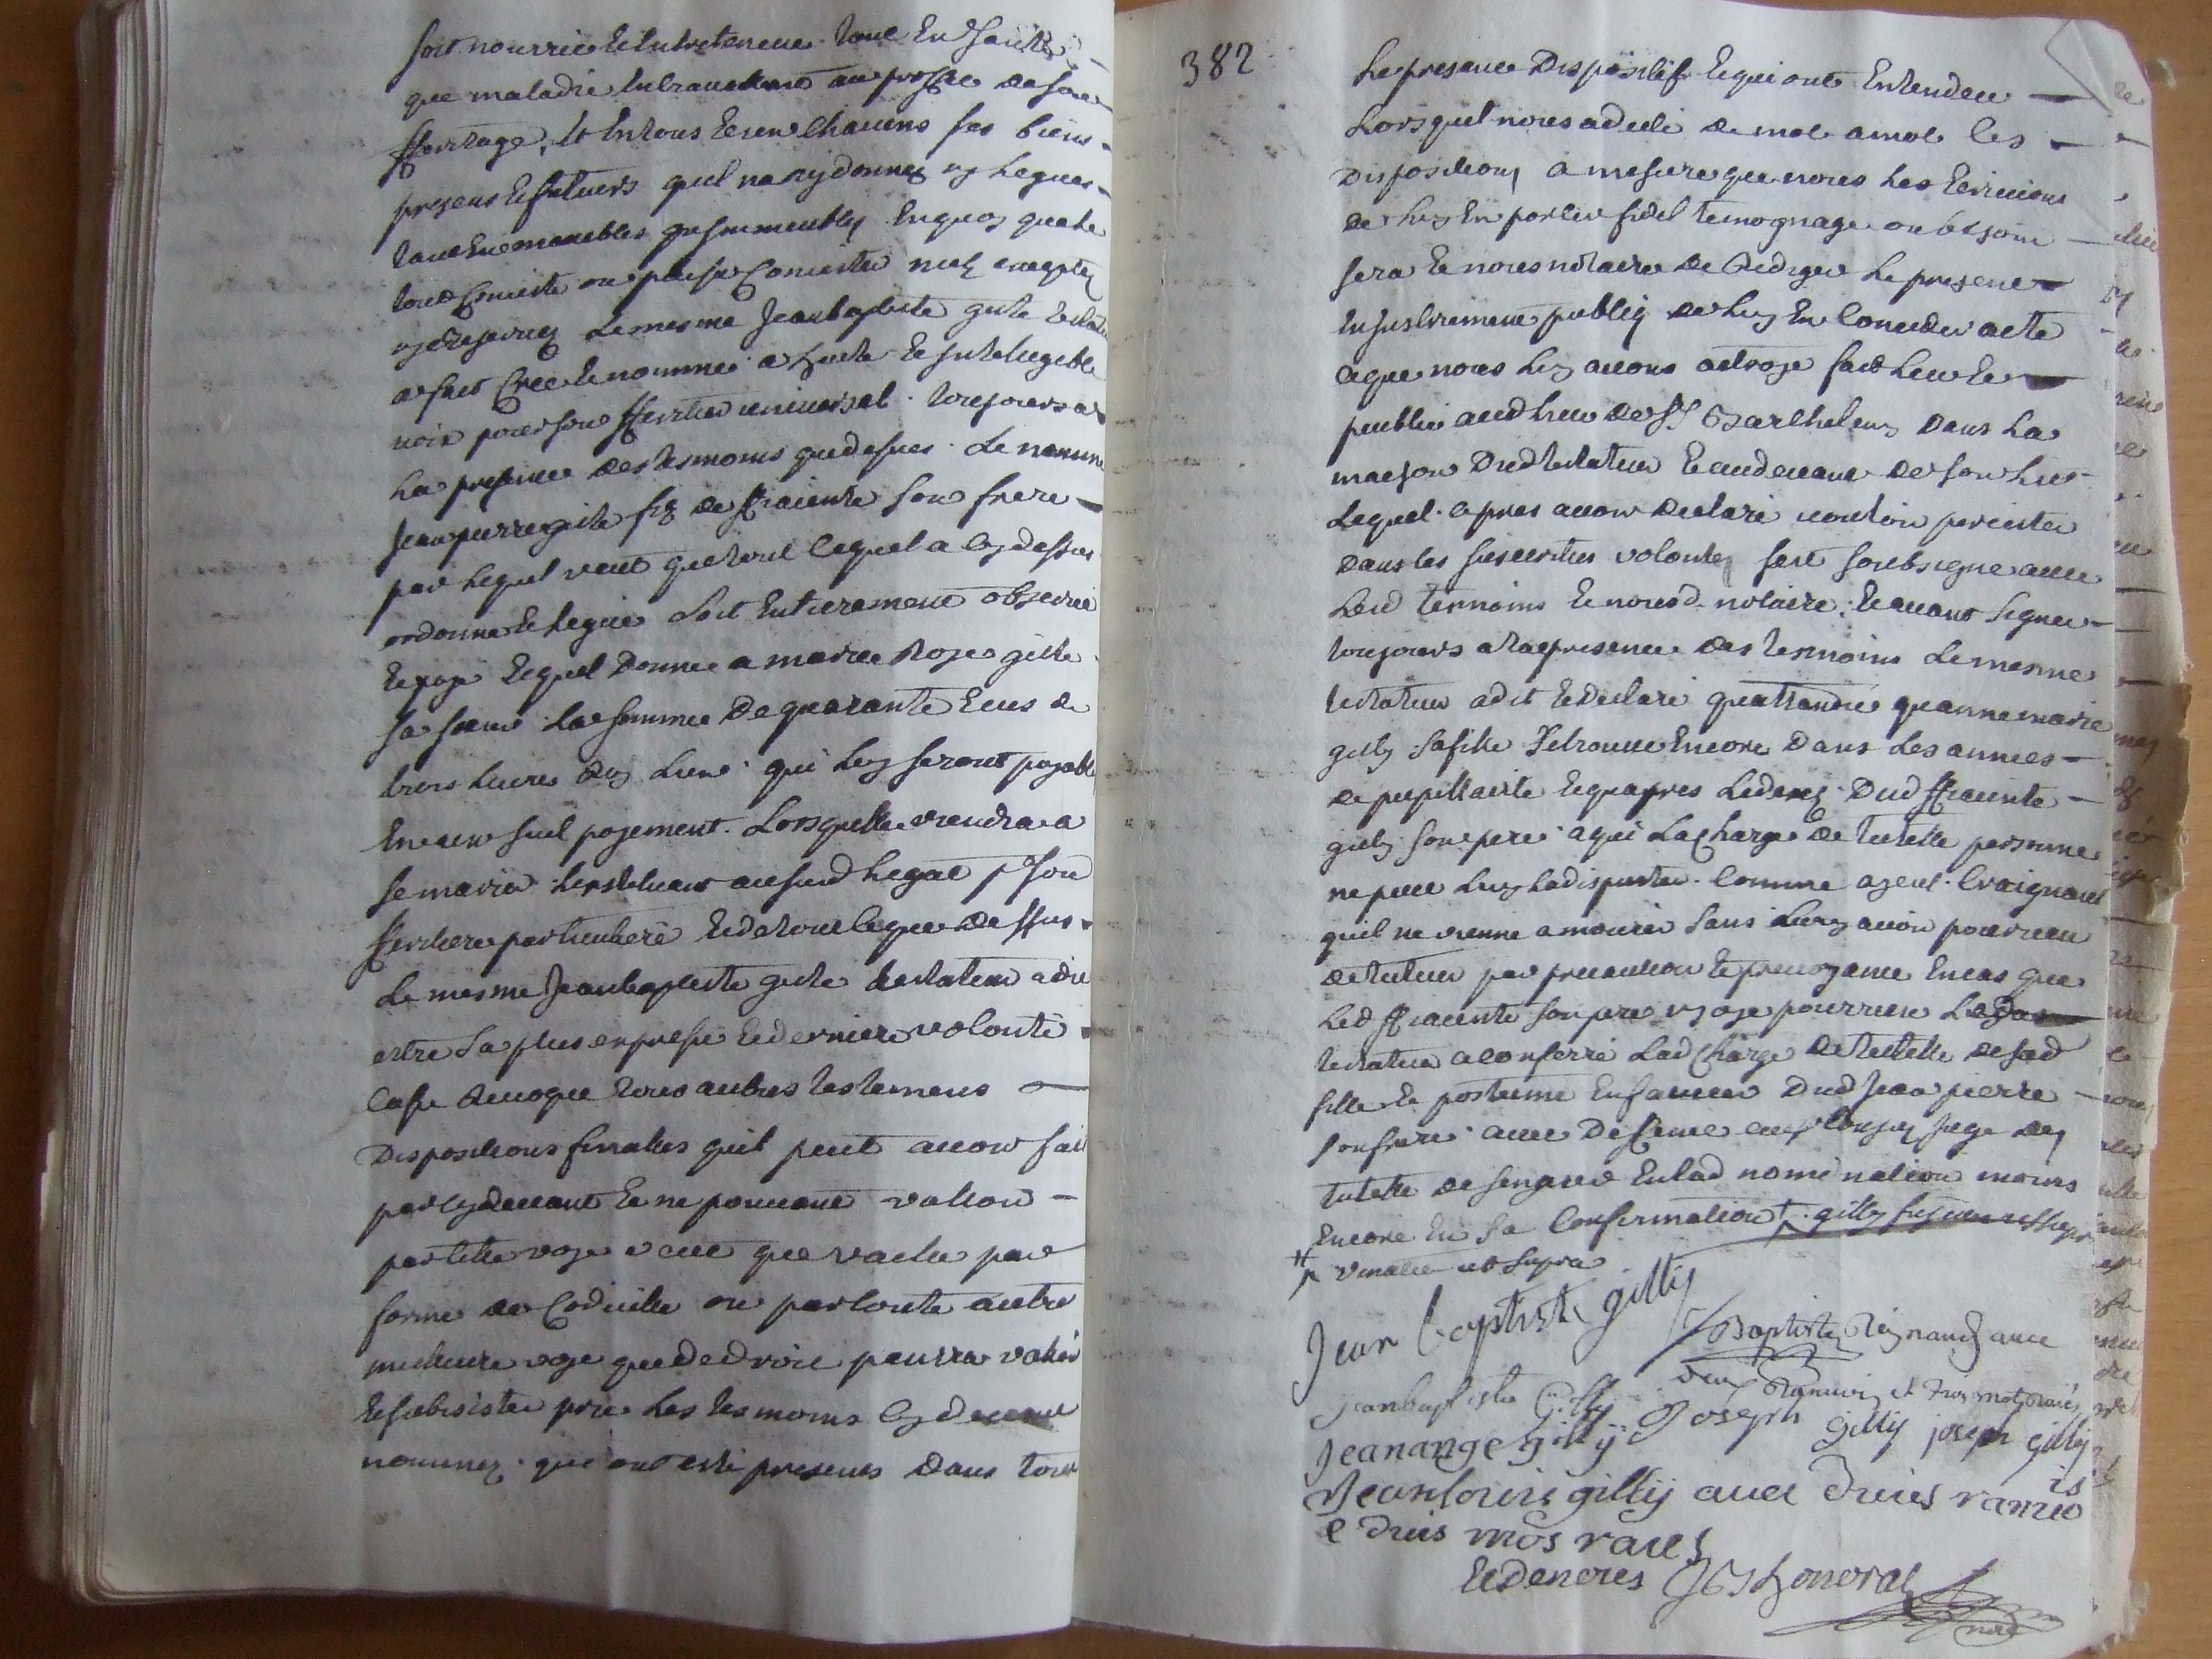 soit nourrie et entretenue tant en santé
que maladie en travaillant au proffit de son
herittage, et en tous et un chacuns ses biens
presens et futeurs quil na ny donnez ny leguez
tant en meuebles qu'immeubles en quoy que le
tout consiste ou puisse consister nuls exeptez
ny reservez le mesme Jean baptiste gille testateur
a fait cree et nommé a haute et inteligible
voix pour son herittier universel toujours a
la presence des tesmoins que desseus le nommé
Jean pierre gille fils de hiacinte son frere
par lequel veut que tout ce quil a cy dessus
ordonné et legué soit entierement observé
et payé et quil donne a marie Rose gille
sa soeur la somme de quarante ecus de
trois livres roy l'une qui luy seront payables
en un seul payement lorsquelle viendra a
se marier l'instituant au sud legat pr son
herittiere particuliere et de tout ce que dessus
le mesme Jean baptiste gille testateur a dit
estre sa plus expresse et derniere volonté
casse revoque tous autres testemens
dispositions finalles quil peut avoir fait
par cy devant et ne pouvant valloir
par telle voye veut que vaille par
forme de Codicille ou par toute autre
meilleure voye que de droit pourra valloir
et subsister prie les tesmoins cy devant
nommez qui ont esté presens dans tout
382
Le presence dispositif et qui ont entendeu
Lorsquil nous a dicté de mot a mot les
dispositions a mesure que nous les ecrivions
de luy en porter fidel temognage ou besoin
sera et nous notaire de rediger le present
instrument publiq de luy en conceder acte
ce que nous luy avons octroyé fait leu et
publié aud lieu de St Barthelemy dans la
maison dud testateur et au devant de son lict
lequel apres avoir declaré vouloir percister
dans les susecrittes volontez sest soubsigne avec
lesd temoins et nousd notaire, et avant signer
toujours a la presence des tesmoins le mesme
testateur a dit et declaré quattandu quanne marie
gilly sa fille se trouve encore dans les années
de pupillarité et qu'apres le deces dud hiacinte
gilly son pere a qui la charge de tutelle personne
ne peut luy la disputer comme ayeul craignant
quil ne vienne a mourir sans luy avoir pourveu
de tuteur par precaution et prevoyance en cas que
led hiacinte son pere ny aye pourveu led
testateur a conferré lad charge de tutelle de sad
fille et postume en faveur dud Jean pierre
son frere avec deffence au juge des
tutelle de singerer en lad nomination moins
encore en sa confirmation gilly
ut supra
Jean baptiste gilly
Baptiste Reynaud avec
deux et trois mots rayés
Jeanbaptiste Gilly
Joseph gilly joseph gilly
Jeanange gilly
Jeanlouis gilly avec
mos raues
Et de nous honorat